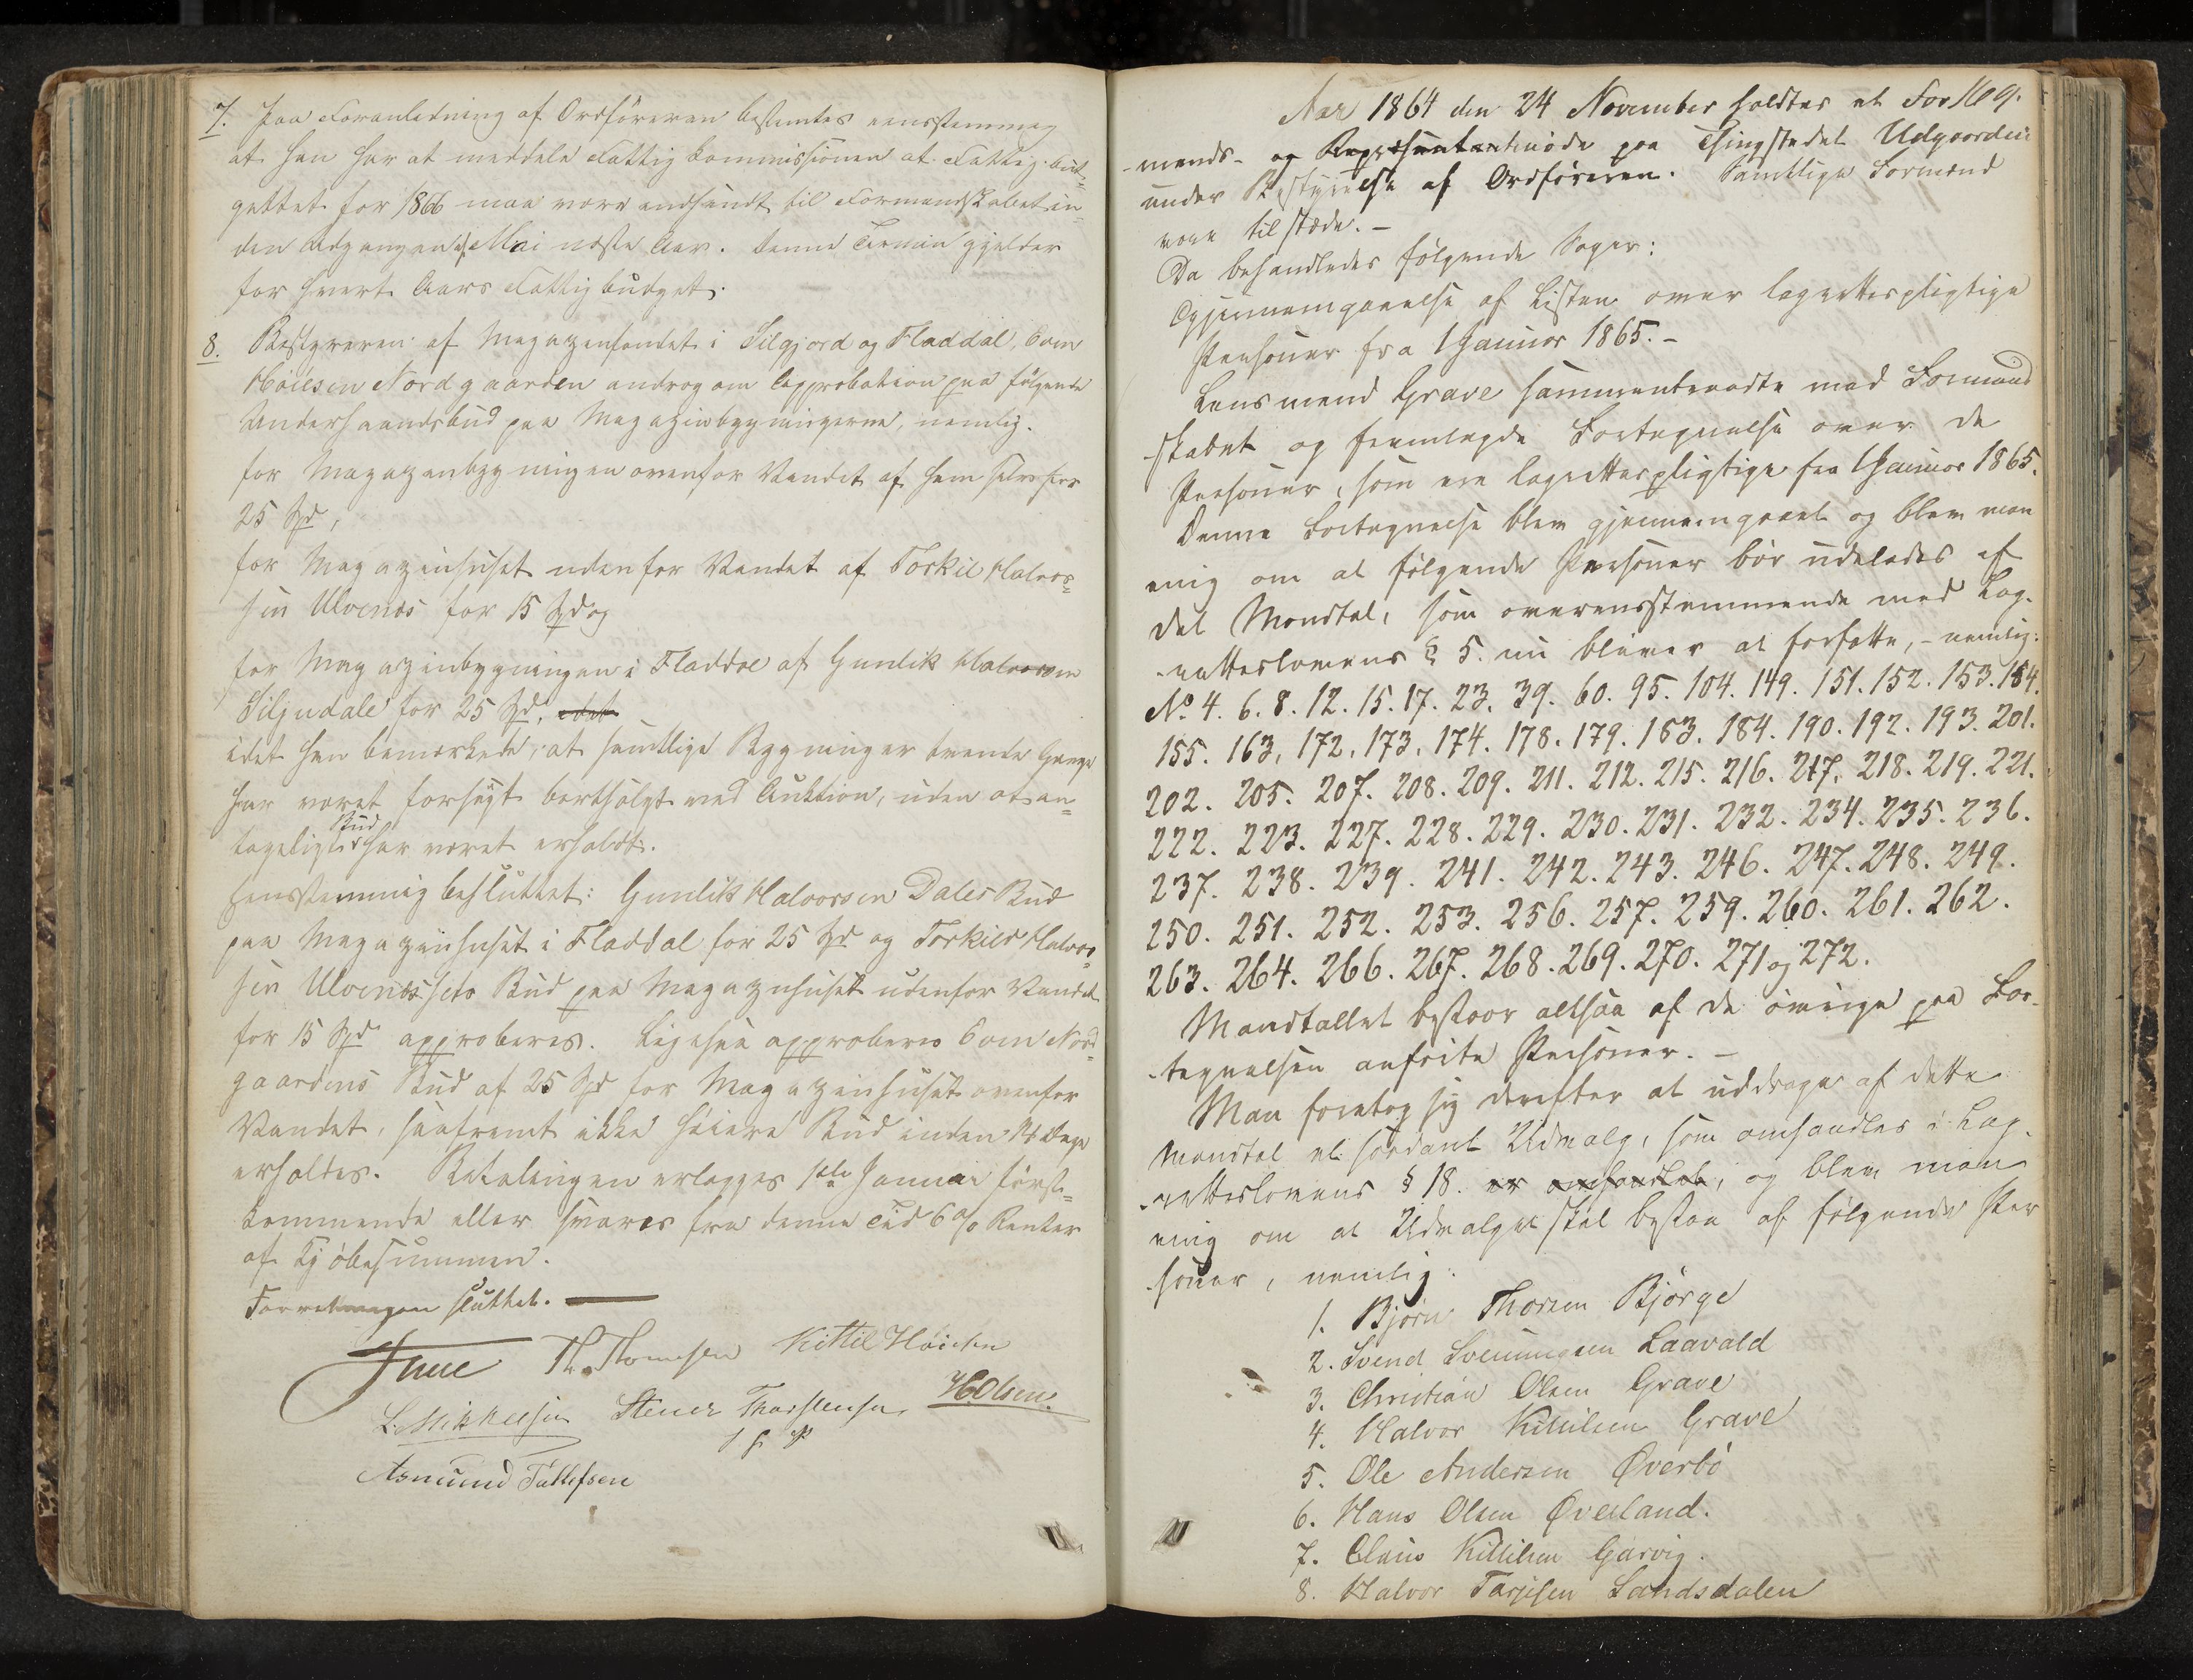 7. Paa Foranledning af Ordföreren bestemtes eensstemmig
at han har at meddele Fattigkommissionen at Fattigbud-
gettet for 1866 maa være indsendt til Formandskabet in-
den Udgangen af Mai næste Aar. Denne Termin gjelder
for hvert Aars Fattigbudget.
8. Bestyreren af Magazinfondet i Silgjord og Fladdal, Even
Høiesen Nordgaarden androg om Approbation paa følgende
Underhaandsbud paa Magazinbygningerne, nemlig.
for Magazinbygningen ovenfor Vandet af ham selv for
25 Spd,
for Magazinhuset udenfor Vandet af Torkil Halvor-
sen Ulvenæs for 15 Spd og
for Magazinbygningen i Fladdal af Gunlik Halvorsen
Siljudale for 25 Spd. idet
idet han bemærkede, at samtlige Bygninger trende Gange
har været forsøgt bortsolgt ved Auktion, uden at an-
tageligt Bud har været erholdt.
Eensstemmig besluttet: Gunlik Halvorsen Dales Bud
paa Magazinhuset i Fladdal for 25 Spd og Torkild Halvor-
sen Ulvenæsseto Bud paa Magazinhuset udenfor Vandet
for 15 Spd approberes. Ligesaa approberes Even Nord-
gaardens Bud af 25 Spd for Magazinhuset ovenfor
Vandet, saafremt ikke høiere Bud inden 14 Dage
erholdes. Betalingen erlægges 1ste Januar først-
kommende eller svares fra denne Tid 6 % Renter
af Kjöbesummen.
Forretningen sluttet.
Fane Th. Thomesen Kittil Höiesen
L. Mikkelsen Stener Thorstensen HOlsen.
Asmund Tallefsen
Aar 1864 den 24 November holdtes et Form-
mænds- og Repræsentantmøde paa Thingstedet Udgaarden
under Bestyrelse af Ordföreren. Samtlige Formænd
vare tilstæde. –
Da behandledes følgende Sager:
Gjennemgaaelse af Listen over lagrettespligtige
Personer fra 1 Januar 1865. –
Lensmand Grave sammentraadte med Formand-
skabet og fremlagde Fortegnelse over de
Personer, som ere lagrettespligtige fra 1 Januar 1865.
Denne Fortegnelse blev gjennemgaaet og blev man
enig om at følgende Personer bør udelades af
det Mandtal, som overensstemmende med Lag-
rettelovens § 5. nu bliver at forfatte, – nemlig:
No. 4. 6. 8. 12. 15. 17. 23. 39. 60. 95. 104. 149. 151. 152. 153. 154.
155. 163. 172. 173. 174. 178. 179. 183. 184. 190. 192. 193. 201.
202. 205. 207. 208. 209. 211. 212. 215. 216. 217. 218. 219. 221.
222. 223. 227. 228. 229. 230. 231. 232. 234. 235. 236.
237. 238. 239. 241. 242. 243. 246. 247. 248. 249.
250. 251. 252. 253. 256. 257. 259. 260. 261. 262.
263. 264. 266. 267. 268. 269. 270. 271 og 272.
Mandtallet bestaar altsaa af de øvrige paa For-
tegnelsen anførte Personer. –
Man foretog sig derefter at uddrage af dette
Mandtal et saadant Udvalg, som omhandles i Lag-
rettelovens § 18. er omhandlet, og blev man
enig om at Udvalget skal bestaa af følgende Per
soner, nemlig:
1. Bjørn Thorsen Bjørge
2. Svend Sveinungsen Laavald
3. Christian Olsen Grave
4. Halvor Kittilsen Grave
5. Ole Andersen Øverbö
6. Hans Olsen Øverland.
7. Claus Kittilsen Garvig.
8. Halvor Tarjesen Landsdalen